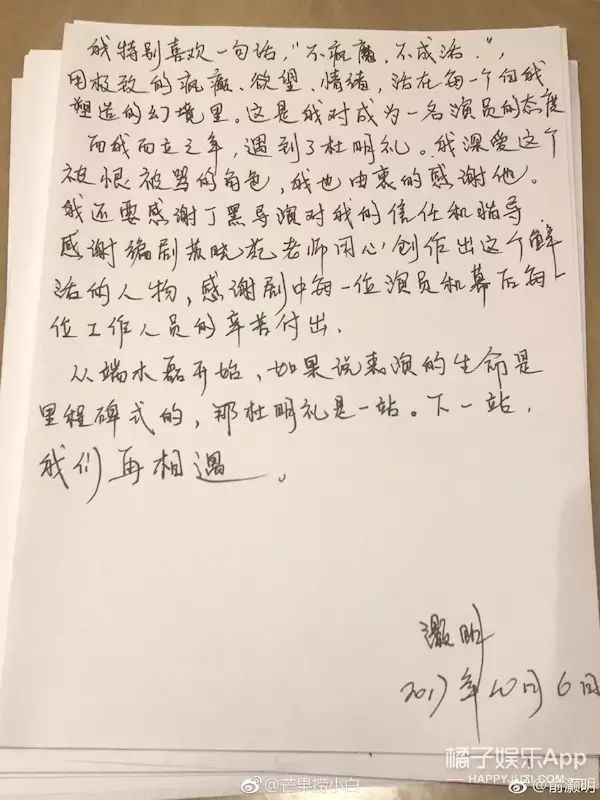 我特别喜欢一句话，“不疯魔，不成活”，
用极致的疯癫、欲望、情绪，活在每一个由我
塑造的幻境里。这是我对成为一名演员的态度
而我而立之年，遇到了杜明礼。我深爱这个
被恨被骂的角色，我也由衷的感谢他。
我还要感谢丁黑导演对我的信任和指导
感谢编剧苏晓苑老师用心创作出这个鲜
活的人物，感谢剧中每一位演员和幕后每一
位工作人员的辛苦付出。
从端木磊开始，如果说表演的生命是
里程碑式的，那杜明礼是一站。下一站，
我们再相遇。
灏明
2017年10月6日
橘子娱乐App
HAPPYJUZI.COM
@芒果捞小白
@俞灏明